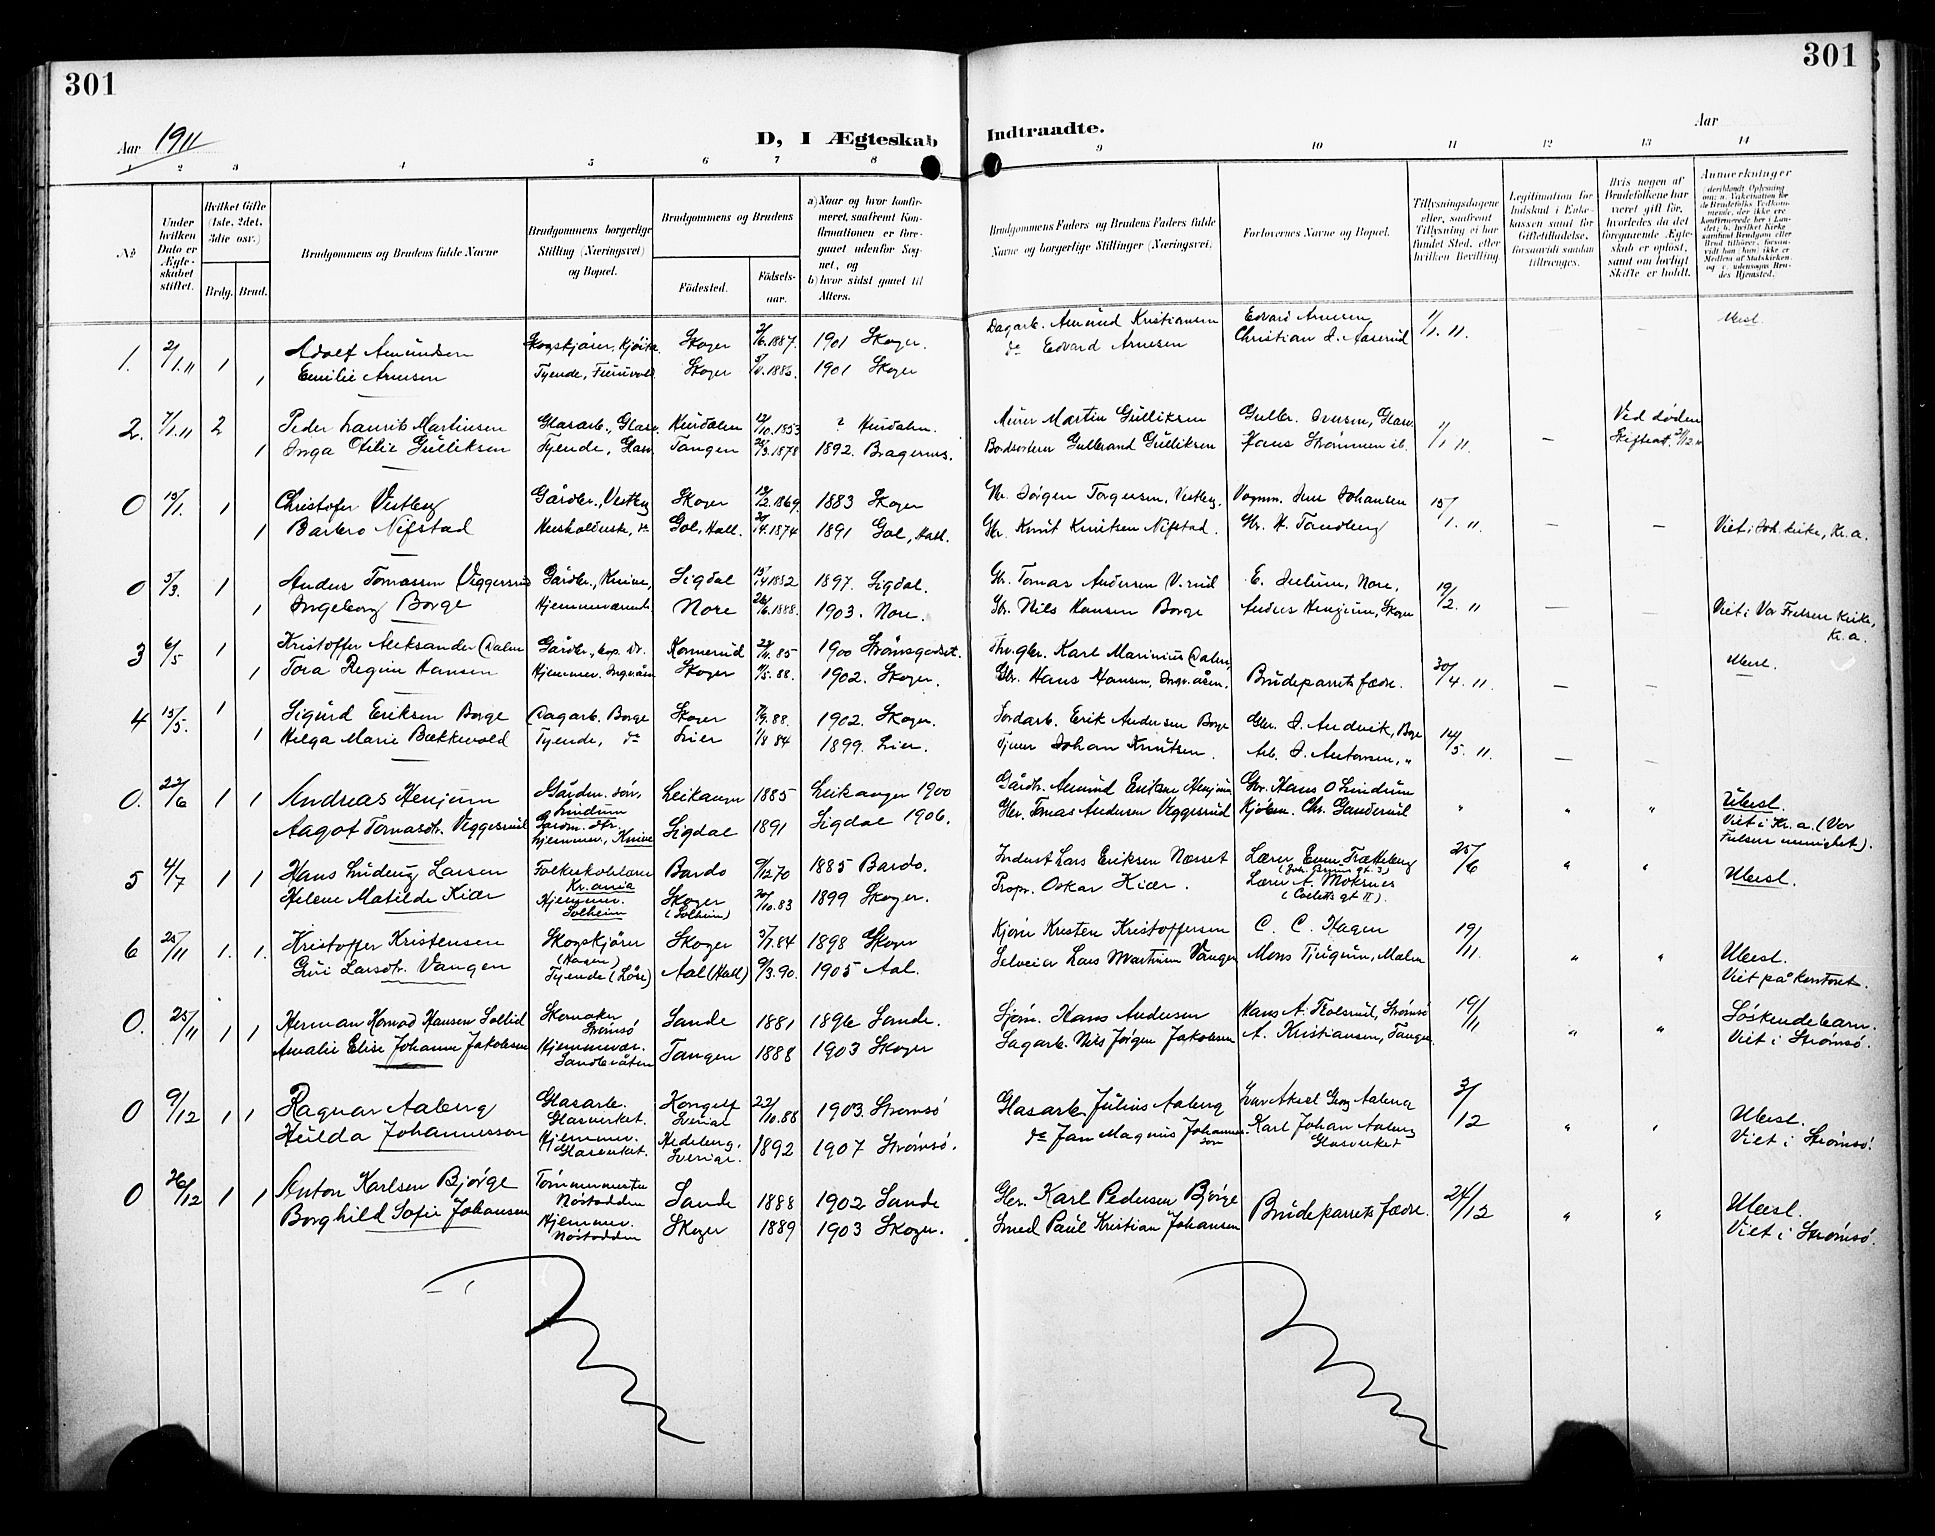 301
301
Aar 1911
D, I Ægteskab Indtraadte.
Aar
1 2 3 4 5 6 7 8 9 10 11 12 13 14
No
Under hvilken Dato er Ægteskabet stiftet.
Hvilket Gifte (1ste, 2det, 3die osv.)
Brdg. Brud.
Brudgommens og Brudens fulde Navne
Brudgommens borgerlige Stilling (Næringsvei) og Bopæl.
Brudgommens og Brudens
Födested. Födselsaar.
a) Naar og hvor konfirmeret, saafremt Konfirmationen er foregaaet udenfor Sognet, og
b) hvor sidst gaaet til Alters.
Brudgommens Faders og Brudens Faders fulde Navne og borgerlige Stillinger (Næringsvei).
Forlovernes Navne og Bopæl.
Tillysningsdagene eller, saafremt Tillysning ei har fundet Sted, efter hvilken Bevilling
Legitimation for Indskud i Enkekassen samt for Giftetilladelse, forsaavidt saadan tiltrænges.
Hvis nogen af Brudefolkene har været gift før, hvorledes da det foregaaende Ægteskab er opløst, samt om lovligt Skifte er holdt.
Anmærkninger
1. 2/1.11 1 Adolf Amundsen Skogskjører, Skoger 1887. 1901 Skoger. Dagarb. Amund Kristiansen Edvard Arnesen 1/1. 11.
1 Emilie Arnesen Tyende, Skoger 1901 Skoger do Edvard Arnesen Christian
2. 7/1.11 2 Peder Laurits Martinsen Glasarb., Glasv. Hurdalen 12/10.1853 ? Hurdalen. Murer Martin Gulliksen Gulbr. Iversen, Glasv. 1/1 11. Ved døden
1 Inga Otilie Gulliksen Tyende, Glasv. Tangen 1878 1892. Bragernes. Gulbrand Gulliksen Hans Strømmen ib. – Skifteat.
0 1 Christofer Vestby Gårdbr., Vestby Skoger 1869. 1883 Skoger Gbr. Jørgen Torgersen, Vestby. Vognm. Jens Johansen 15/1. 11. – –
1 Barbro Nifstad Husholderske, do Gol, Hall. 1874 1891 Gol, Hall. Gbr. Knut Knutsen Nifstad. Gbr. H. Tandberg Viet i Joh. kirke, Kr.a.
0 5/3. 1 Anders Tomassen Viggersrud Gårdbr., Knive, Sigdal 1882 1897. Sigdal. Gbr. Tomas Andersen V.rud Nore, 19/2. 11 – –
1 Ingeborg Borge Hjemmeværende Nore 26/6.1888. 1903. Nore. Gbr. Nils Hansen Borge Andres Henjum, Skoger Viet i Vor Frelsers kirke, Kr.a.
3 6/5 1 Kristoffer Aleksander Dalen Gårdbr., Konnerud 85 1900 Strømsgodset. Karl Marinius Dalen, 30/4. 11. Ubesl.
1 Tora Regine Hansen Hjemmev. Skoger 88. 1902. Skoger. Gbr. Hans Hansen, Brudeparrets fædre. – –
4 13/5. 1 Sigurd Eriksen Borge Dagarb. Borge Skoger 88. 1902. Skoger. Jordarb. Erik Andersen Borge Gbr. J. Andvik, Borge 14/5. 11.
1 Helga Marie Bækkevold Tyende, do Lier 84 1899. Lier. Johan Knutsen. Arb. J. Antonsen, " – –
0. 22/6 1 1 Andreas Henjum Gårdm. søn, Lindum Leikanger 1885 Leikanger 1900 Gårdbr. Amund Eriksen Henjum Gbr. Hans O Lindrum " " " Ubesl.
Aagot Tomasdtr. Viggersrud Gårdm. dtr. Hjemmev, Knive Sigdal 1891 Sigdal 1906. Gbr. Tomas Andersen Viggesrud Kjøbm. Chr. Viet i Kr.a. (Vor Frelsers menighet).
5 4/7 1 1 Hans Ludvig Larsen Folkeskolelærer Kr.ania Bardo 70 1885 Bardo. Lars Eriksen Næsset Lærer Even Trætteberg 25/6 " " Ubesl.
Helene Matilde Kiær Hjemmev. Solheim Skoger (Solheim) 20/10.83 1899 Skoger. Propr. Oskar Kiær. Lærer A. Moksnes
6 25/11 1. 1. Kristoffer Kristensen Skogskjører (Hagen) Skoger 84 1898 Skoger Kjører Kristen Kristoffersen C. C. Hagen 19/11 " " Ubesl.
Guri Larsdtr. Vangen Tyende (Löse) Aal (Hall) 9/3.90. 1905 Aal. Selveier Lars Vangen Mons Tjugum, Malm Viet på kontoret.
0. 25/11 1 1 Herman Konrad Hansen Sollid Skomaker Strømsö Sande 1881 1896 Sande. Sjøm. Hans Andersen Hans A. Strømsö 19/11 " " Søskendebarn.
Amalie Elise Johanne Jakobsen Hjemmevær. Tangen 1888 1903 Skoger Sagarb. Nils Jørgen Jakobsen A. Kristiansen, Tangen Viet i Strømsö.
0 9/12 1 1 Ragnar Aaberg Glasarb. Glasverket. Kongelf Sverige 22/10.88 1903. Strømsö Glasarb. Julius Aaberg Aksel Georg Aaberg 3/12 " " Ubesl.
Hulda Johannesson Hjemmev. Glasverket. Sverige. 1892 1907 Strømsö. do Jan Magnus Johannesson Karl Johan Aaberg Glasverket Viet i Strømsö.
0 26/12 1 1 Anton Karlsen Bjørge Nöstodden Sande 1888 1902 Sande Gbr. Karl Pedersen Bjørge Brudeparrets fædre. 24/12 " " Ubesl.
Borghild Sofie Johansen Hjemmev. Nöstodden Skoger 1889 1903 Skoger. Smed Paul Kristian Johansen Viet i Strømsö.